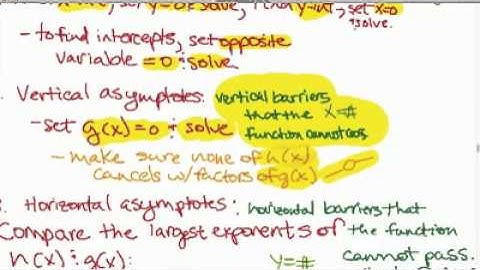 set y=0 & solve, find y-int, set x=0
& solve.
- to find intercepts, set opposite
variable = 0 & solve
. Vertical asymptotes: vertical barriers
that the x=#
- set g(x)=0 & solve function cannot cross
- make sure none of h(x)
cancels w/ factors of g(x)
. Horizontal asymptotes: horizontal barriers that
Compare the largest exponents of the function
h(x) & g(x): y=# cannot pass.